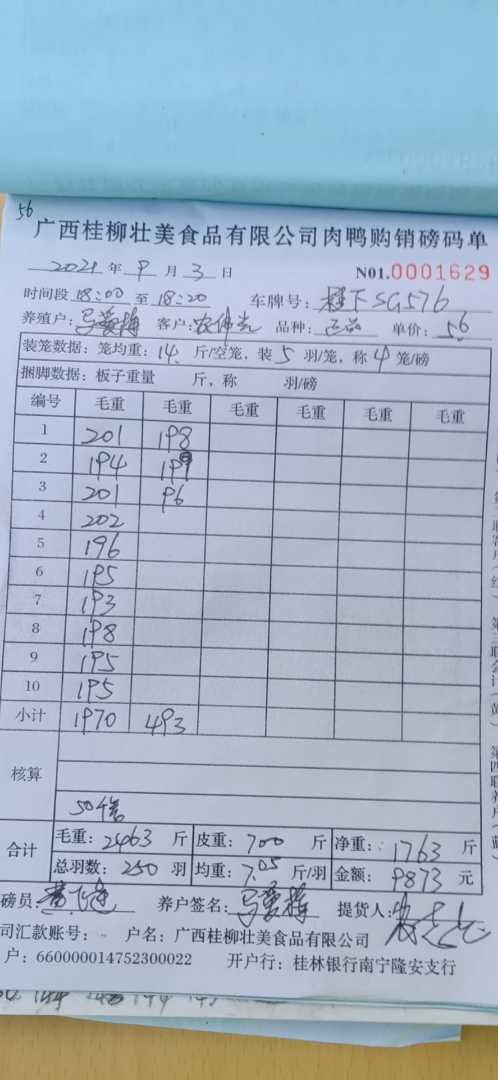 56
广西桂柳壮美食品有限公司肉鸭购销磅码单
2021 年 9 月 3 日 N01.0001629
时间段 18:00 至 18:20 车牌号: 桂F SG576
养殖户: 马爱梅 客户: 农伟 品种: 单价: 5.6
装笼数据: 笼均重: 14 斤/空笼, 装 5 羽/笼, 称 4 笼/磅
捆脚数据: 板子重量 斤, 称 羽/磅
编号 毛重 毛重 毛重 毛重 毛重 毛重
1 201 198
2 194 199
3 201 96
4 202
5 196
6 195
7 193
8 198
9 195
10 195
小计 1970 493
核算
50笼
合计 毛重: 2463 斤 皮重: 700 斤 净重: 1763 斤
总羽数: 250 羽 均重: 7.05 斤/羽 金额: 9873 元
磅员 养户签名: 马爱梅 提货人:
司汇款账号: 户名: 广西桂柳壮美食品有限公司
户: 660000014752300022 开户行: 桂林银行南宁隆安支行